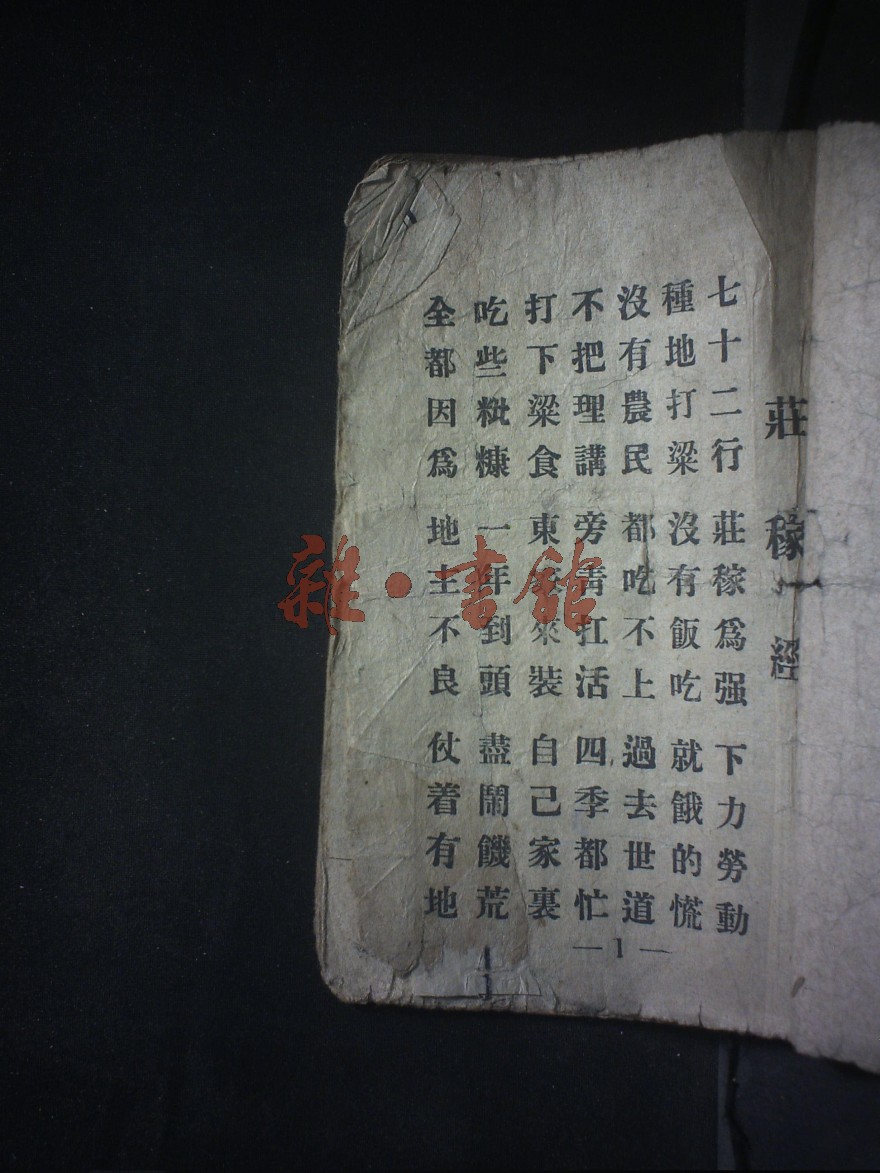 莊稼經
七十二行 莊稼爲强 下力勞動
種地打粱 沒有飯吃 就餓的慌
沒有農民 都吃不上 過去世道
不把理講 旁靑扛活 四季都忙
打下粱食 東 來裝 自己家裏
吃些粃糠 一年到頭 盡鬧饑荒
全都因爲 地主不良 仗着有地
—1—
雜·書館